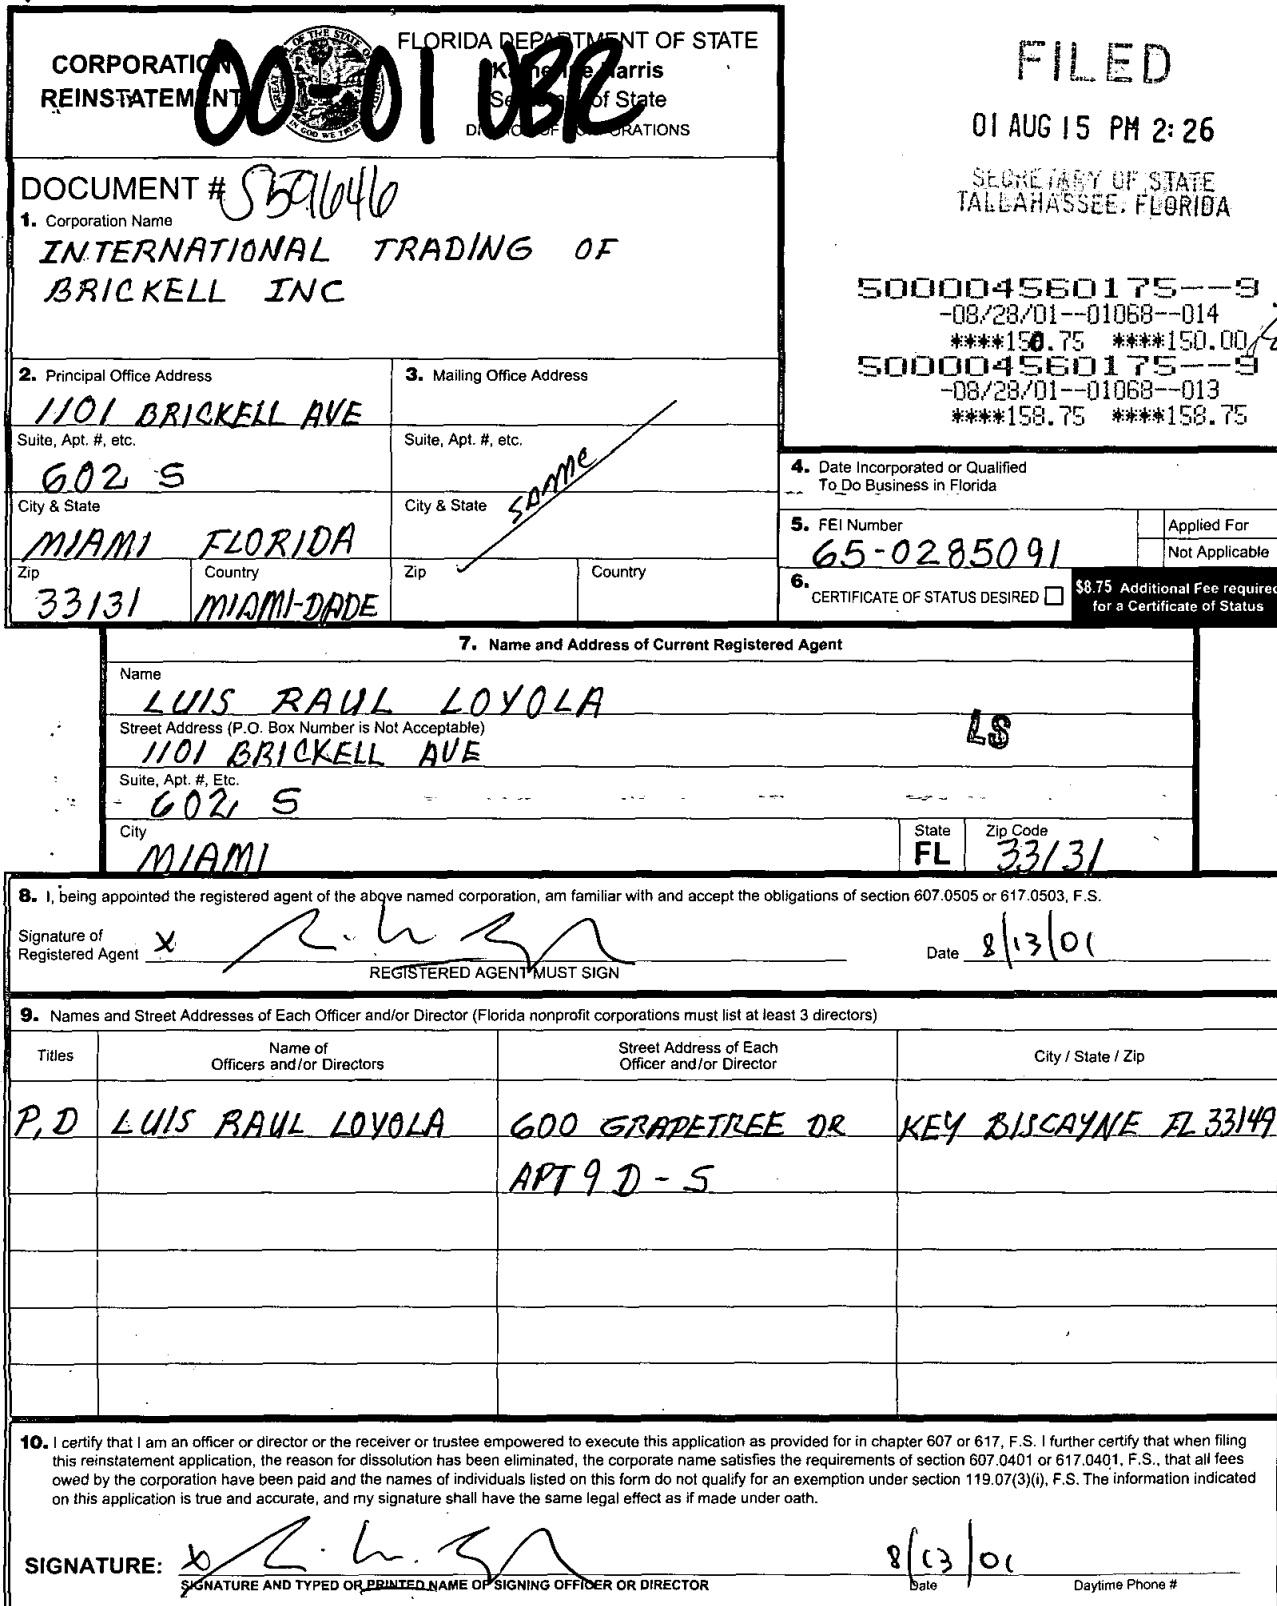 CORPORATION
REINSTATEMENT
FLORIDA DEPARTMENT OF STATE
Katherine Harris
Secretary of State
DIVISION OF CORPORATIONS
00-01 UBR
FILED
01 AUG 15 PM 2:26
SECRETARY OF STATE
TALLAHASSEE, FLORIDA
DOCUMENT # S59646
1. Corporation Name
INTERNATIONAL TRADING OF
BRICKELL INC
500004560175--9
-08/28/01--01068--014
****150.75 ****150.00
500004560175--9
-08/28/01--01068--013
****158.75 ****158.75
2. Principal Office Address
1101 BRICKELL AVE
Suite, Apt. #, etc.
602 S
City & State
MIAMI FLORIDA
Zip
33131
Country
MIAMI-DADE
3. Mailing Office Address
Suite, Apt. #, etc.
SAME
City & State
Zip
Country
4. Date Incorporated or Qualified
To Do Business in Florida
5. FEI Number
65-0285091
Applied For
Not Applicable
6.
CERTIFICATE OF STATUS DESIRED
$8.75 Additional Fee required
for a Certificate of Status
7. Name and Address of Current Registered Agent
Name
LUIS RAUL LOYOLA
Street Address (P.O. Box Number is Not Acceptable)
1101 BRICKELL AVE
LS
Suite, Apt. #, Etc.
602 S
City
MIAMI
State
FL
Zip Code
33131
8. I, being appointed the registered agent of the above named corporation, am familiar with and accept the obligations of section 607.0505 or 617.0503, F.S.
Signature of
Registered Agent X
REGISTERED AGENT MUST SIGN
Date 8/13/01
9. Names and Street Addresses of Each Officer and/or Director (Florida nonprofit corporations must list at least 3 directors)
Titles
Name of
Officers and/or Directors
Street Address of Each
Officer and/or Director
City / State / Zip
P, D LUIS RAUL LOYOLA 600 GRAPETREE DR KEY BISCAYNE FL 33149
APT 9 D - S
10. I certify that I am an officer or director or the receiver or trustee empowered to execute this application as provided for in chapter 607 or 617, F.S. I further certify that when filing
this reinstatement application, the reason for dissolution has been eliminated, the corporate name satisfies the requirements of section 607.0401 or 617.0401, F.S., that all fees
owed by the corporation have been paid and the names of individuals listed on this form do not qualify for an exemption under section 119.07(3)(i), F.S. The information indicated
on this application is true and accurate, and my signature shall have the same legal effect as if made under oath.
SIGNATURE: X
SIGNATURE AND TYPED OR PRINTED NAME OF SIGNING OFFICER OR DIRECTOR
8/13/01
Date
Daytime Phone #